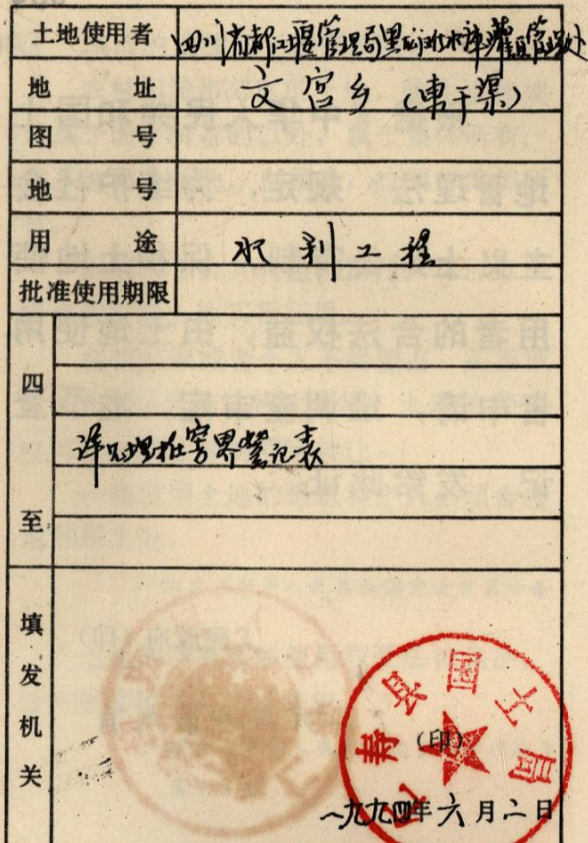 土地使用者 四川省都江堰管理局黑龙滩水库灌区管理处
地址 文宫乡(東干渠)
图号
地号
用途 水利工程
批准使用期限
四至
详见埋桩穷界登记表
填发机关
仁寿县国土局
(印)
一九九四年六月二日